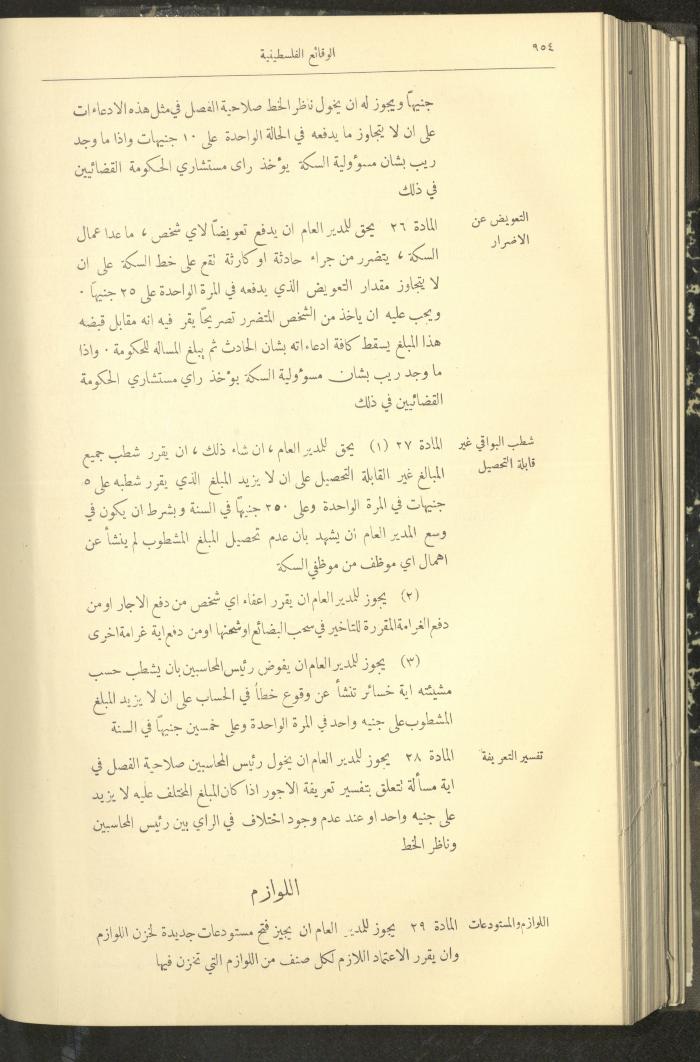 ٩٥٤
الوقائع الفلسطينية
جنيهاً ويجوز له ان يخول ناظر الخط صلاحية الفصل في مثل هذه الادعاءات
على ان لا يتجاوز ما يدفعه في الحالة الواحدة على ١٠ جنيهات واذا ما وجد
ريب بشان مسؤولية السكة يؤخذ راى مستشاري الحكومة القضائيين
في ذلك
التعويض عن
الاضرار
المادة ٢٦ يحق للمدير العام ان يدفع تعويضاً لاي شخص ، ما عدا عمال
السكة ، يتضرر من جراء حادثة او كارثة تقع على خط السكة على ان
لا يتجاوز مقدار التعويض الذي يدفعه في المرة الواحدة على ٢٥ جنيهاً ٠
ويجب عليه ان ياخذ من الشخص المتضرر تصريحاً يقر فيه انه مقابل قبضه
هذا المبلغ يسقط كافة ادعاءاته بشان الحادث ثم يبلغ المساله للحكومة ٠ واذا
ما وجد ريب بشان مسوؤولية السكة يؤخذ راي مستشاري الحكومة
القضائيين في ذلك
شطب البواقي غير
قابلة التحصيل
المادة ٢٧ (١) يحق للمدير العام ، ان شاء ذلك ، ان يقرر شطب جميع
المبالغ غير القابلة التحصيل على ان لا يزيد المبلغ الذي يقرر شطبه على ٥
جنيهات في المرة الواحدة وعلى ٢٥٠ جنيهاً في السنة وبشرط ان يكون في
وسع المدير العام ان يشهد بان عدم تحصيل المبلغ المشطوب لم ينشأ عن
اهمال اي موظف من موظفي السكة
(٢) يجوز للمدير العام ان يقرر اعفاء اي شخص من دفع الاجار او من
دفع الغرامة المقررة للتاخير في سحب البضائع او شحنها او من دفع اية غرامة اخرى
(٣) يجوز للمدير العام ان يفوض رئيس المحاسبين بان يشطب حسب
مشيئته اية خسائر تنشأ عن وقوع خطأ في الحساب على ان لا يزيد المبلغ
المشطوب على جنيه واحد في المرة الواحدة وعلى خمسين جنيهاً في السنة
تفسير التعريفة
المادة ٢٨ يجوز للمدير العام ان يخول رئيس المحاسبين صلاحية الفصل في
اية مسألة تتعلق بتفسير تعريفة الاجور اذا كان المبلغ المختلف عليه لا يزيد
على جنيه واحد او عند عدم وجود اختلاف في الراي بين رئيس المحاسبين
وناظر الخط
اللوازم
اللوازم والمستودعات
المادة ٢٩ يجوز للمدير العام ان يجيز فتح مستودعات جديدة لخزن اللوازم
وان يقرر الاعتماد اللازم لكل صنف من اللوازم التي تخزن فيها